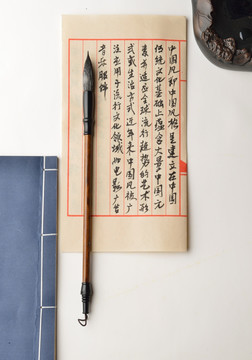 中国风即中国风格是建立在中国
传统文化基础上蕴含大量中国元
素并适应全球流行趋势的艺术形
式或生活方式近年来中国风被广
泛应用于流行文化领域如电影广告
音乐服饰